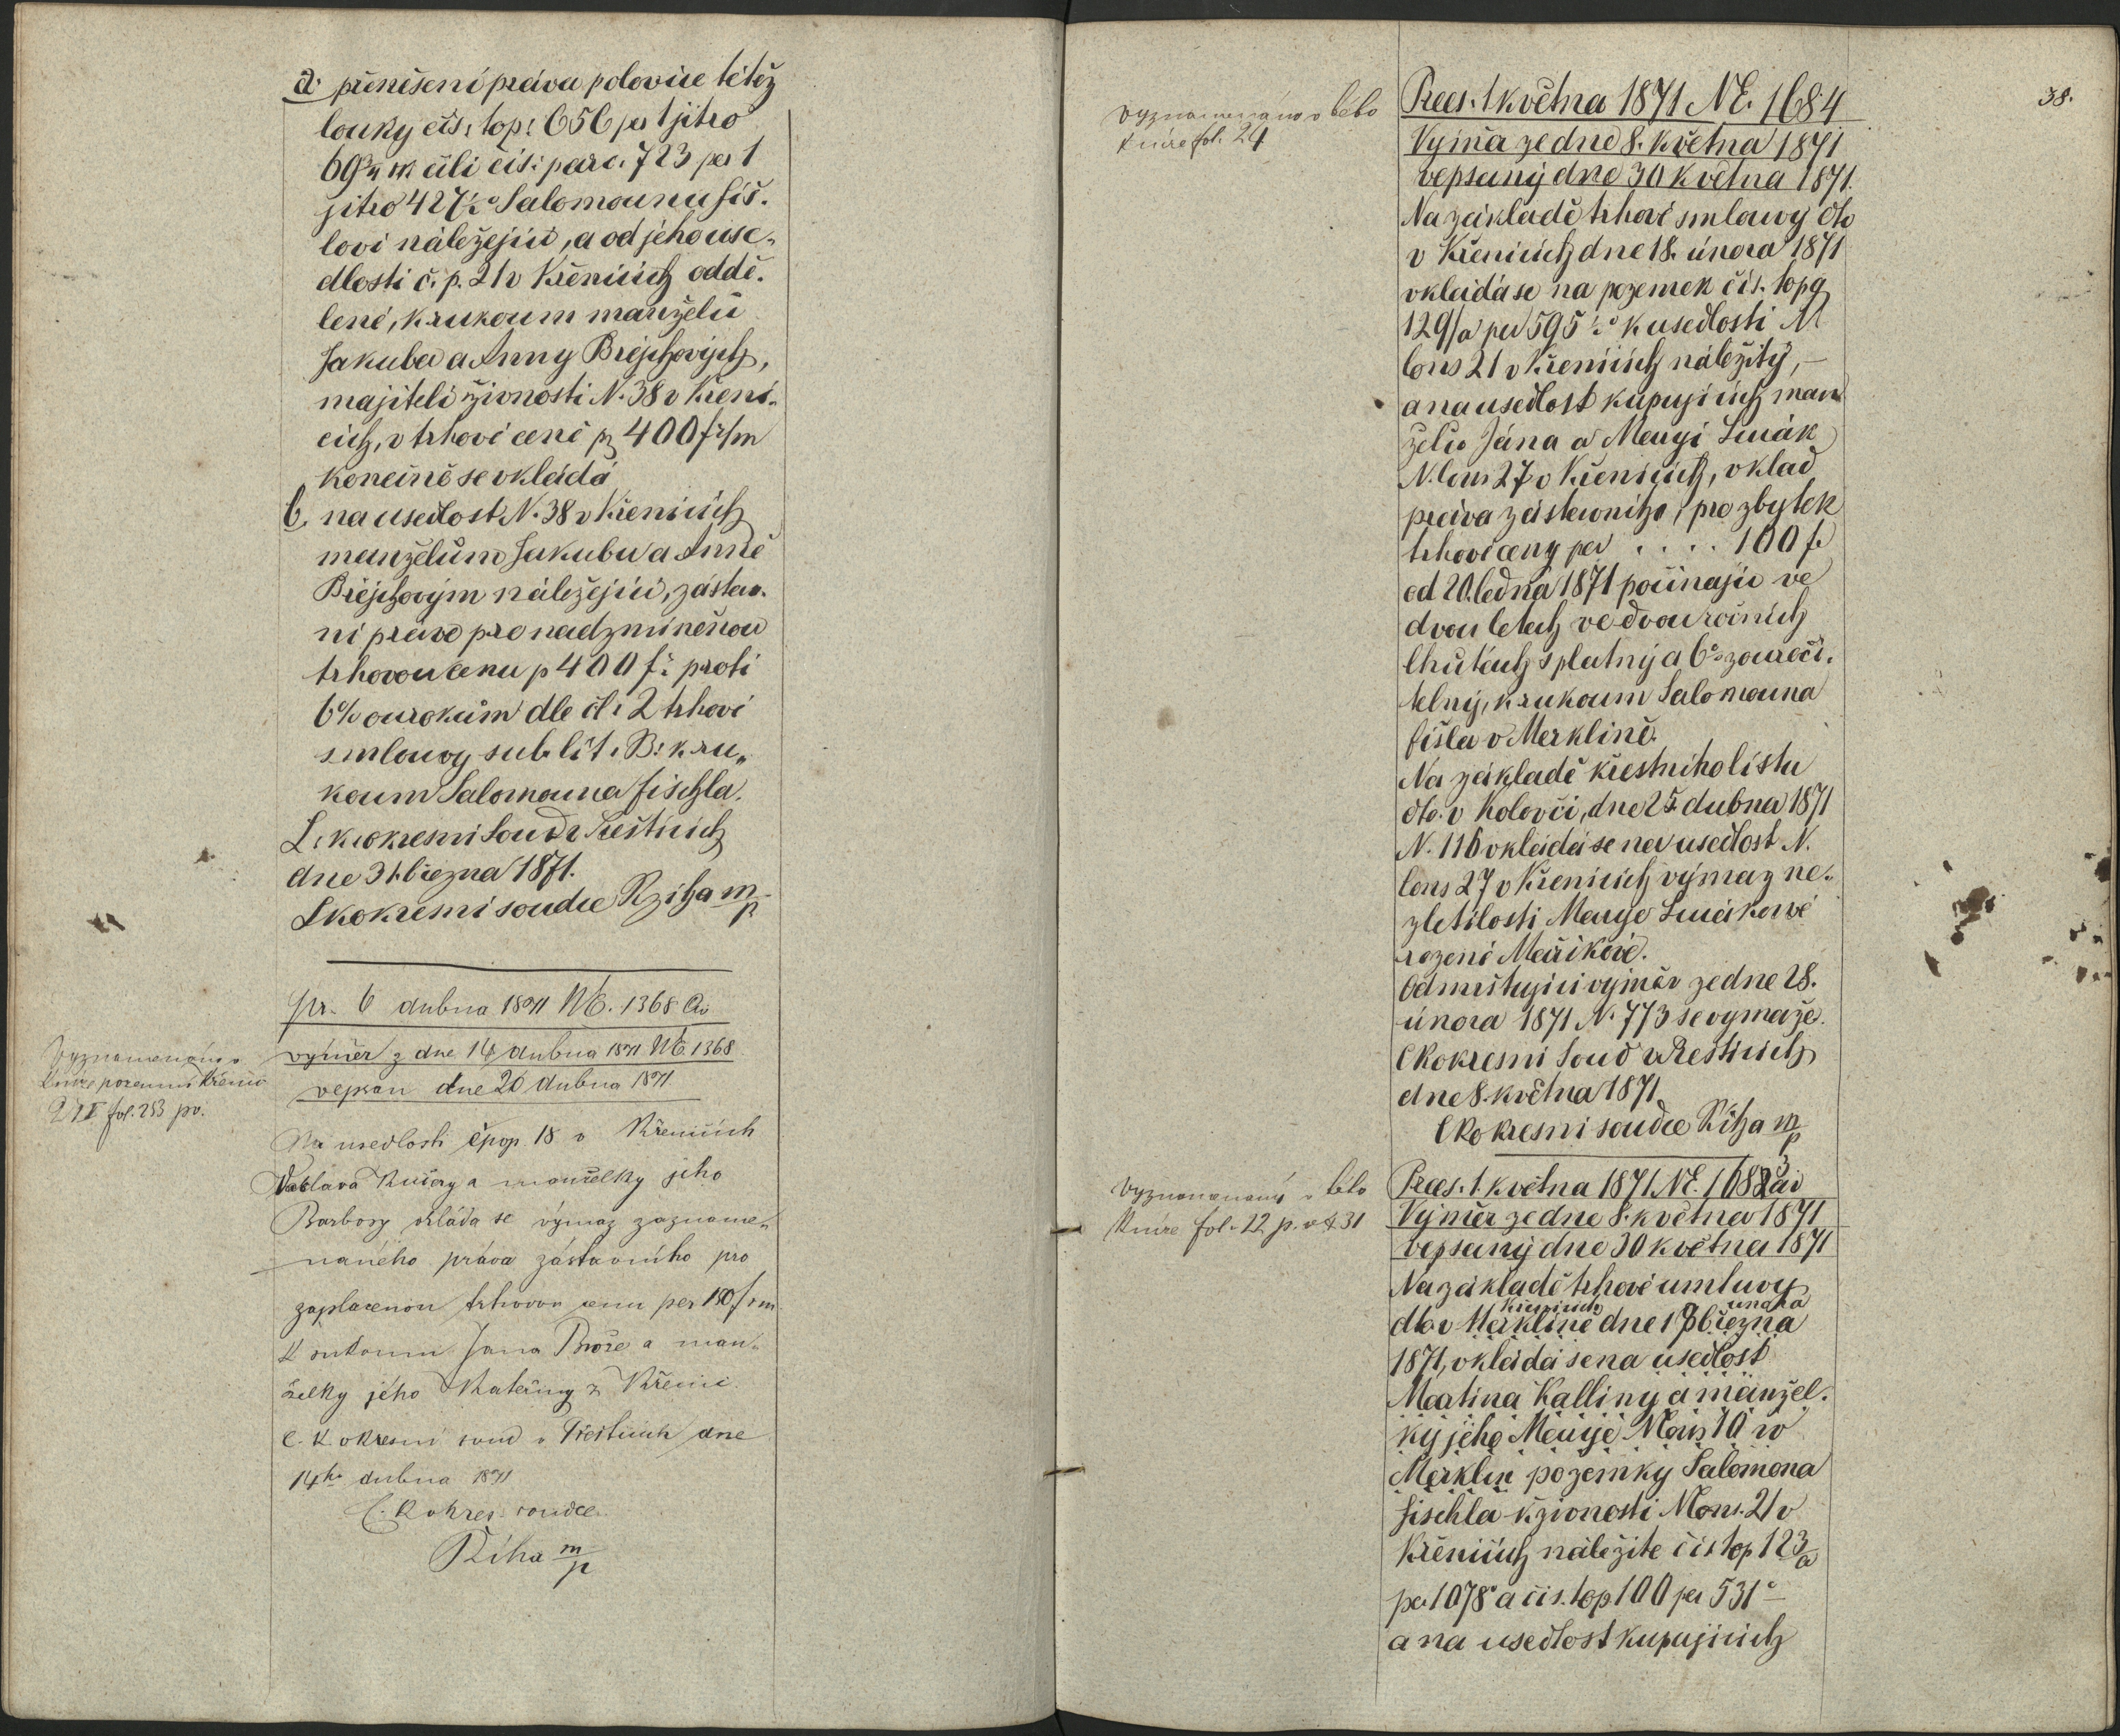 a. přenešení práva polovice tétéž
louky čís: top: 656 per 1 jitro
69¾ čili čís: parc. 723 per 1
jitro 427½° Salomounu Fiš-
lovi náležející, a od jeho use-
dlosti č. p. 21 v Křenicích oddě-
lené, k rukoum manželů
Jakuba a Anny Brejchových,
majitelů živnosti N. 38 v Křeni-
cích, v trhové ceně pz 400 f r/m
konečně se vkládá
b. na usedlost N. 38 v Křenicích
manželům Jakubu a Anně
Brejchovým náležející, zástav-
ní právo pro nadzmíněnou
trhovou cenu p 400 f: proti
6% ourokům dle čl: 2 trhové
smlouvy sub lit. B: k ru-
koum Salomouna Fischla.
C. k. okresní Soud v Přešticích
dne 31. března 1871.
C k okresní soudce Rziha m/p
Pr. 6 dubna 1871 NE. 1368 civ
výměr z dne 14 dubna 1871 NE. 1368
vepsán dne 20 dubna 1871
Vyznamenáno v
knize pozemní Křenic
fol. 253 pv.
Na usedlosti čpop. 18 v Křenicích
Václava Kučery a manželky jeho
Barbory vkládá se výmaz zazname-
naného práva zástavního pro
zaplacenou trhovou cenu per 180 f rm
k rukoum Jana Brože a man-
želky jeho Kateřiny z Křenic
C. k. okresní soud v Přešticích dne
14ho dubna 1871
C. k okres: soudce
Říha m/p
38.
Vyznamenáno v této
knize fol. 24
Praes. 1. května 1871 NE. 1684
Výměr ze dne 8. května 1871
vepsaný dne 30 května 1871.
Na základě trhové smlouvy dto
v Křenicích dne 18. února 1871
vkládá se na pozemek čís. topg
129/a per 595½° k usedlosti N
cons 21 v Křenicích náležitý, —
a na usedlost kupujících man
želů Jána a Maryi Smák
N. cons 27 v Křenicích, vklad
práva zástavního, pro zbytek
trhové ceny per . . . . 100 f.
od 20. ledna 1871 počínajíc ve
dvou letech ve dvou ročních
lhůtách splatný a 6% zouroči-
telný, k rukoum Salomouna
Fišla v Merklíně.
Na základě křestního listu
dto. v Kolovči, dne 25. dubna 1871
N. 116 vkládá se na usedlost N.
cons 27 v Křenicích výmaz ne-
zletilosti Marye Smákové
rozené Maříkové.
Odmrštující výměr ze dne 28.
února 1871 N. 773 se vymaže.
C k okresní Soud v Přešticích
dne 8. května 1871
C k okresní soudce Říha m/p
Vyznamenaný v této
knize fol. 12 p. v & 31
Praes. 1. května 1871 NE. 1682 3 civ
Výměr ze dne 8. května 1871
vepsaný dne 30 května 1871
Na základě trhové umluvy
Křenicích února
dto v Merklíně dne 18 března
1871, vkládá se na usedlost
Martina Kalliny a manžel-
ky jeho Marye Ncons 10 v
Merklín pozemky Salomona
Fischla k živnosti Ncons. 21 v
Křenicích náležité čís top 123/a
per 1078° a čís. top 100 per 531° —
a na usedlost kupujících